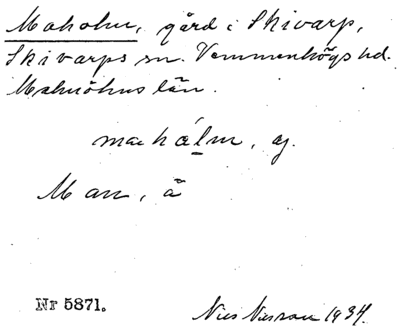 Maholm, gård i Skivarp,
Skivarps sn. Vemmenhögs hd.
Malmöhus län.
mahålm, aj.
Man, å
Nr 5871.
Nils Nilsson 1934.